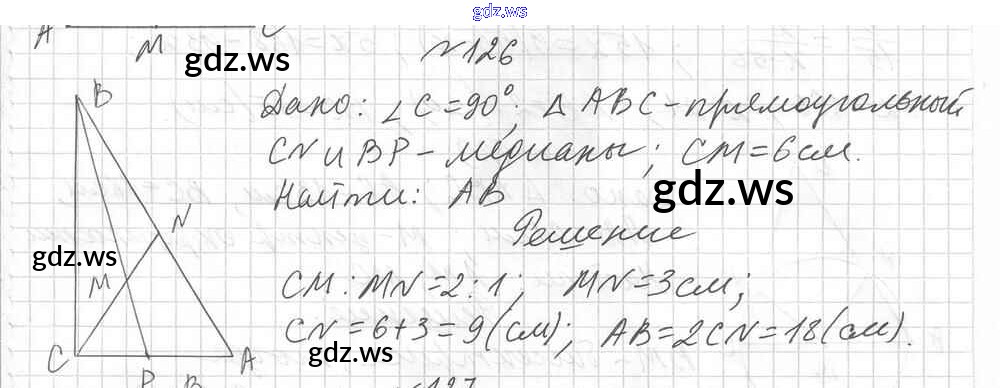 gdz.ws
A M C
gdz.ws
№126
B
Дано: ∠C=90°; Δ ABC-прямоугольный
CN и BP-медианы; CM=6см.
gdz.ws
Найти: AB
N
Решение
gdz.ws
M
CM:MN=2:1; MN=3см;
CN=6+3=9(см); AB=2CN=18(см).
gdz.ws
C A
P B
№127